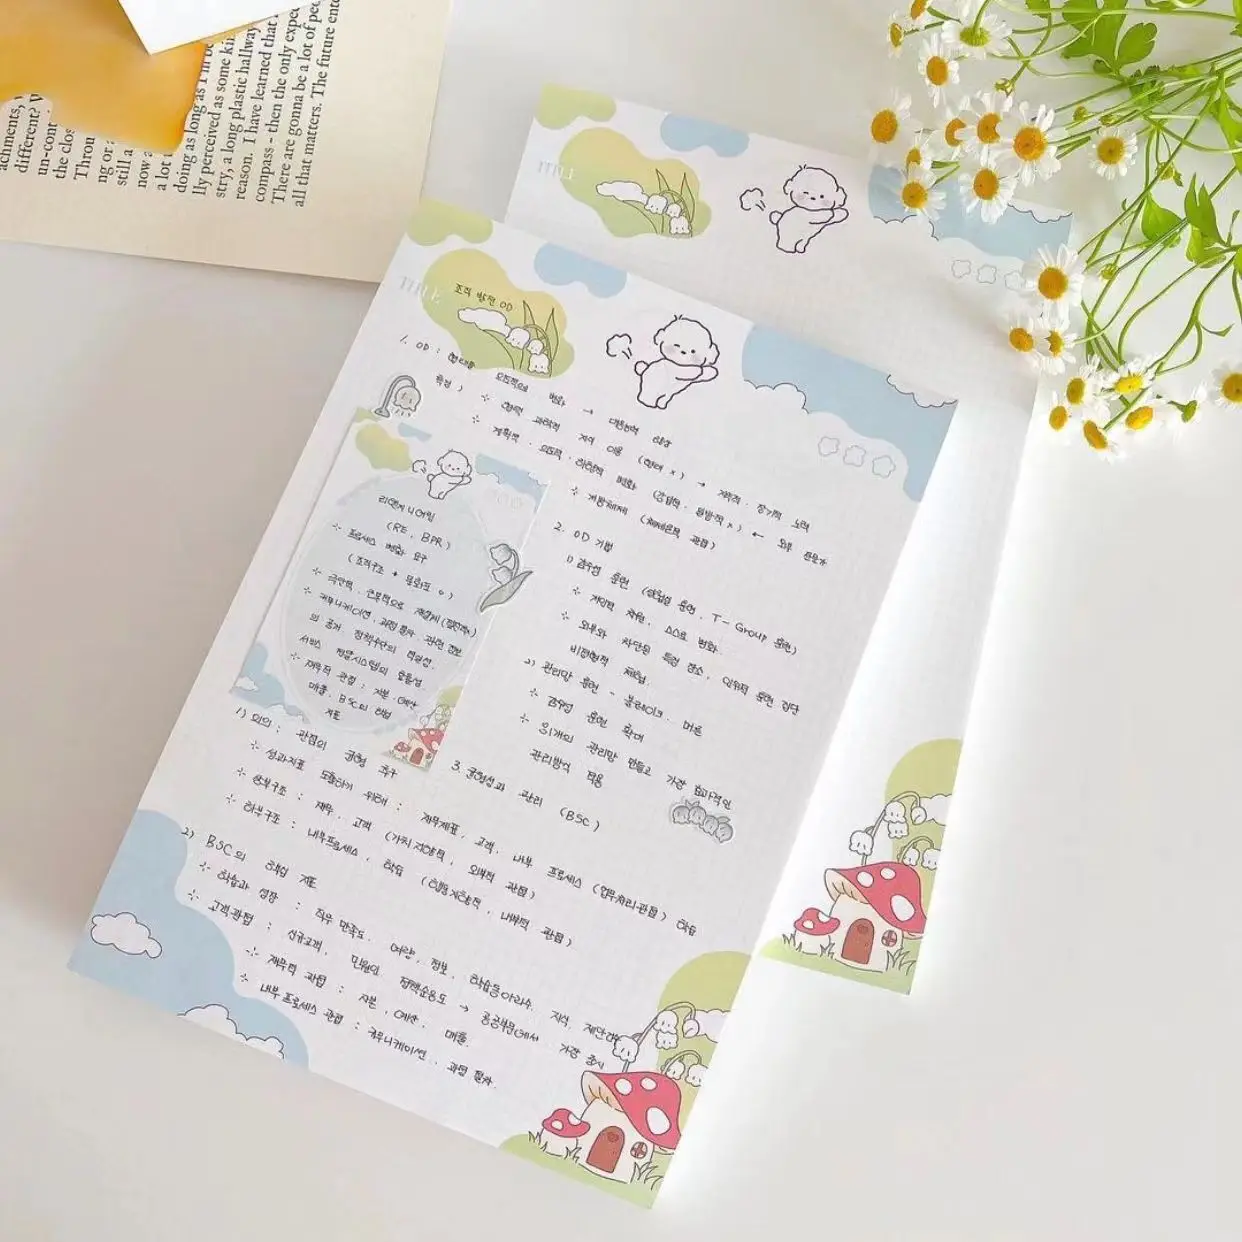 achments,
different?
un-cont
the clos
Thron
ng or a
still a
now a
a lot
doing as long as I'm
lly perceived as some ki
stry, a long plastic hallway
reason. I have learned that
compass - then the only expe
There are gonna be a lot of pe
all that matters. The future ent
TITLE
TITLE 조직 발전 OD
1. OD : 형태를 의도적으로 변화 → 대응능력 향상
특징 ) 행태 과학적 지식 이용
계획적 · 의도적 · 하향적 변화
개방체제 (체제론적 관점) ← 외부 전문가
2. OD 기법
1) 감수성 훈련 (실험실 훈련, T-Group 훈련)
자발적 스스로 변화
외부와 차단된 특정 장소,
비정형적 체험
2) 관리망 훈련 - 블레이크, 머튼
감수성 훈련 확대
81개의 관리망 만들고 가장 효과적인
관리방식 적용
3. 균형성과 관리 (BSC)
리엔지니어링
(RE, BPR)
프로세스 변화 요구
(조직구조 + 문화도 o)
극단적, 근본적으로 재설계
커뮤니케이션, 과정 관련 정보
의 공개, 정책수단의 적실성
서비스 전달시스템의 효율성
재무적 관점 : 자본, 예산
매출, BSC의 하범
지표
1) 의의 : 관점의 균형 추구
성과지표 도출하기 위해 : 재무제표, 고객, 내부 프로세스 (업무처리관점) 학습
상부구조 : 재무, 고객 (가치지향적, 외부적 관점)
하부구조 : 내부프로세스, 학습 (행동지향적, 내부적 관점)
2) BSC의 핵심 지표
학습과 성장 : 직무 만족도, 역량, 정보, 학습동아리수, 지식, 제안건수
고객관점 : 신규고객, 민원인, 정책순응도 → 공공부문에서 가장 중시
재무적 관점 : 자본, 예산, 매출
내부 프로세스 관점 : 커뮤니케이션, 과정 절차